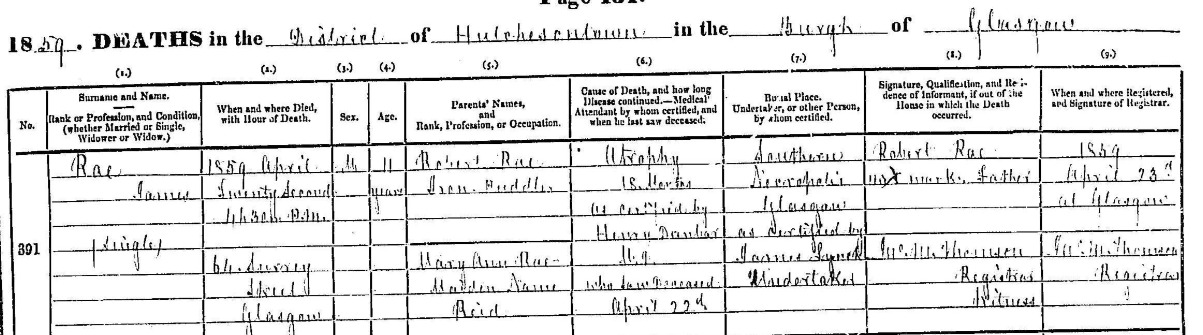 Page 131.
1859. DEATHS in the District of Hutchesontown in the Burgh of Glasgow
(1.) (2.) (3.) (4.) (5.) (6.) (7.) (8.) (9.)
No.
Surname and Name.
Rank or Profession, and Condition,
(whether Married or Single,
Widower or Widow.)
When and where Died,
with Hour of Death.
Sex.
Age.
Parents' Names,
and
Rank, Profession, or Occupation.
Cause of Death, and how long
Disease continued.—Medical
Attendant by whom certified, and
when he last saw deceased.
Burial Place.
Undertaker, or other Person,
by whom certified.
Signature, Qualification, and Resi-
dence of Informant, if out of the
House in which the Death
occurred.
When and where Registered,
and Signature of Registrar.
391
Rae
James
(Single)
1859 April
Twenty Second
4h 30m P.M.
64 Surrey
Street
Glasgow
M
11
years
Robert Rae
Iron Puddler
Mary Ann Rae
Maiden Name
Reid
Atrophy
18 Months
as certified by
Henry Dunbar
who saw deceased
April 22d
Southern
Necropolis
Glasgow
as certified by
James Lynch
Undertaker
Robert Rae
his X mark. Father
Jas. M. Thomson
Registrar
Witness
1859
April 23d
at Glasgow
Jas. M. Thomson
Registrar